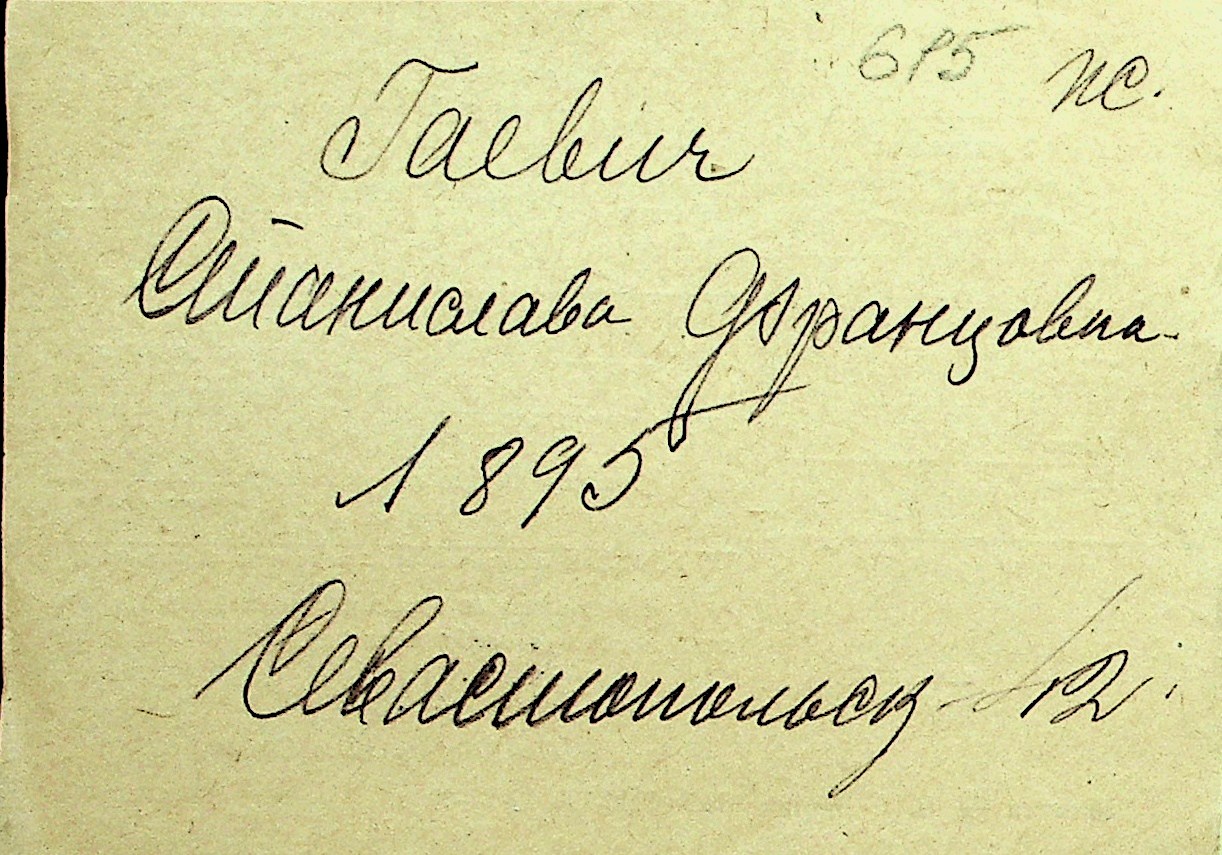 615 пс.
Гаевич
Станислава Францовна
1895
Севастопольск 12.